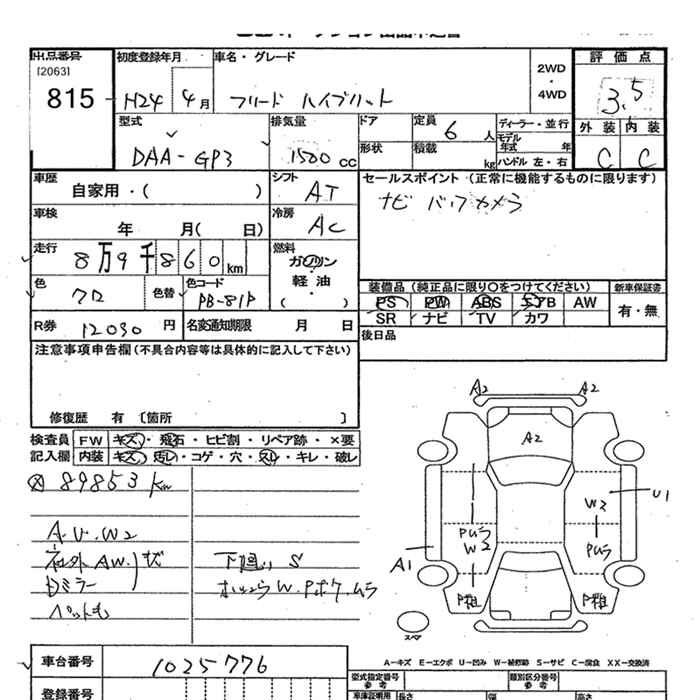 出品番号 初度登録年月 車名・グレード 2WD・4WD 評価点
[2063]
815 H24 4月 フリード ハイブリット 3.5
型式 排気量 ドア 定員 6人 ディーラー・並行 外装 内装
DAA-GP3 1500cc 形状 積載 kg モデル年式 年 C C
ハンドル 左・右
車歴 自家用・( ) シフト AT セールスポイント (正常に機能するものに限ります)
車検 年 月( 日) 冷房 AC ナビ バックカメラ
走行 8万9千860km 燃料 ガソリン・軽油・( )
色 クロ 色替 色コード PB-81P 装備品(純正品に限り○をつけてください) 新車保証書
PS PW ABS エアB AW 有・無
R券 12030円 名変通知期限 月 日 SR ナビ TV カワ
注意事項申告欄(不具合内容等は具体的に記入して下さい) 後日品
修復歴 有 〔箇所 〕
検査員 FW キズ・飛石・ヒビ割・リペア跡・×要
記入欄 内装 キズ・汚レ・コゲ・穴・スレ・キレ・破レ
89853km
A.U.W2
社外AW.キズ 下廻りS
Dミラー
ペット毛
A2 A2
A2
W2 U1
Pムラ W2 Pムラ
A1
P粗 P粗
スペア
A-キズ E-エクボ U-凹み W-補修跡 S-サビ C-腐食 XX-交換済
車台番号 1025776 型式指定番号 参考 類別区分番号 参考
登録番号 長さ 幅 高さ